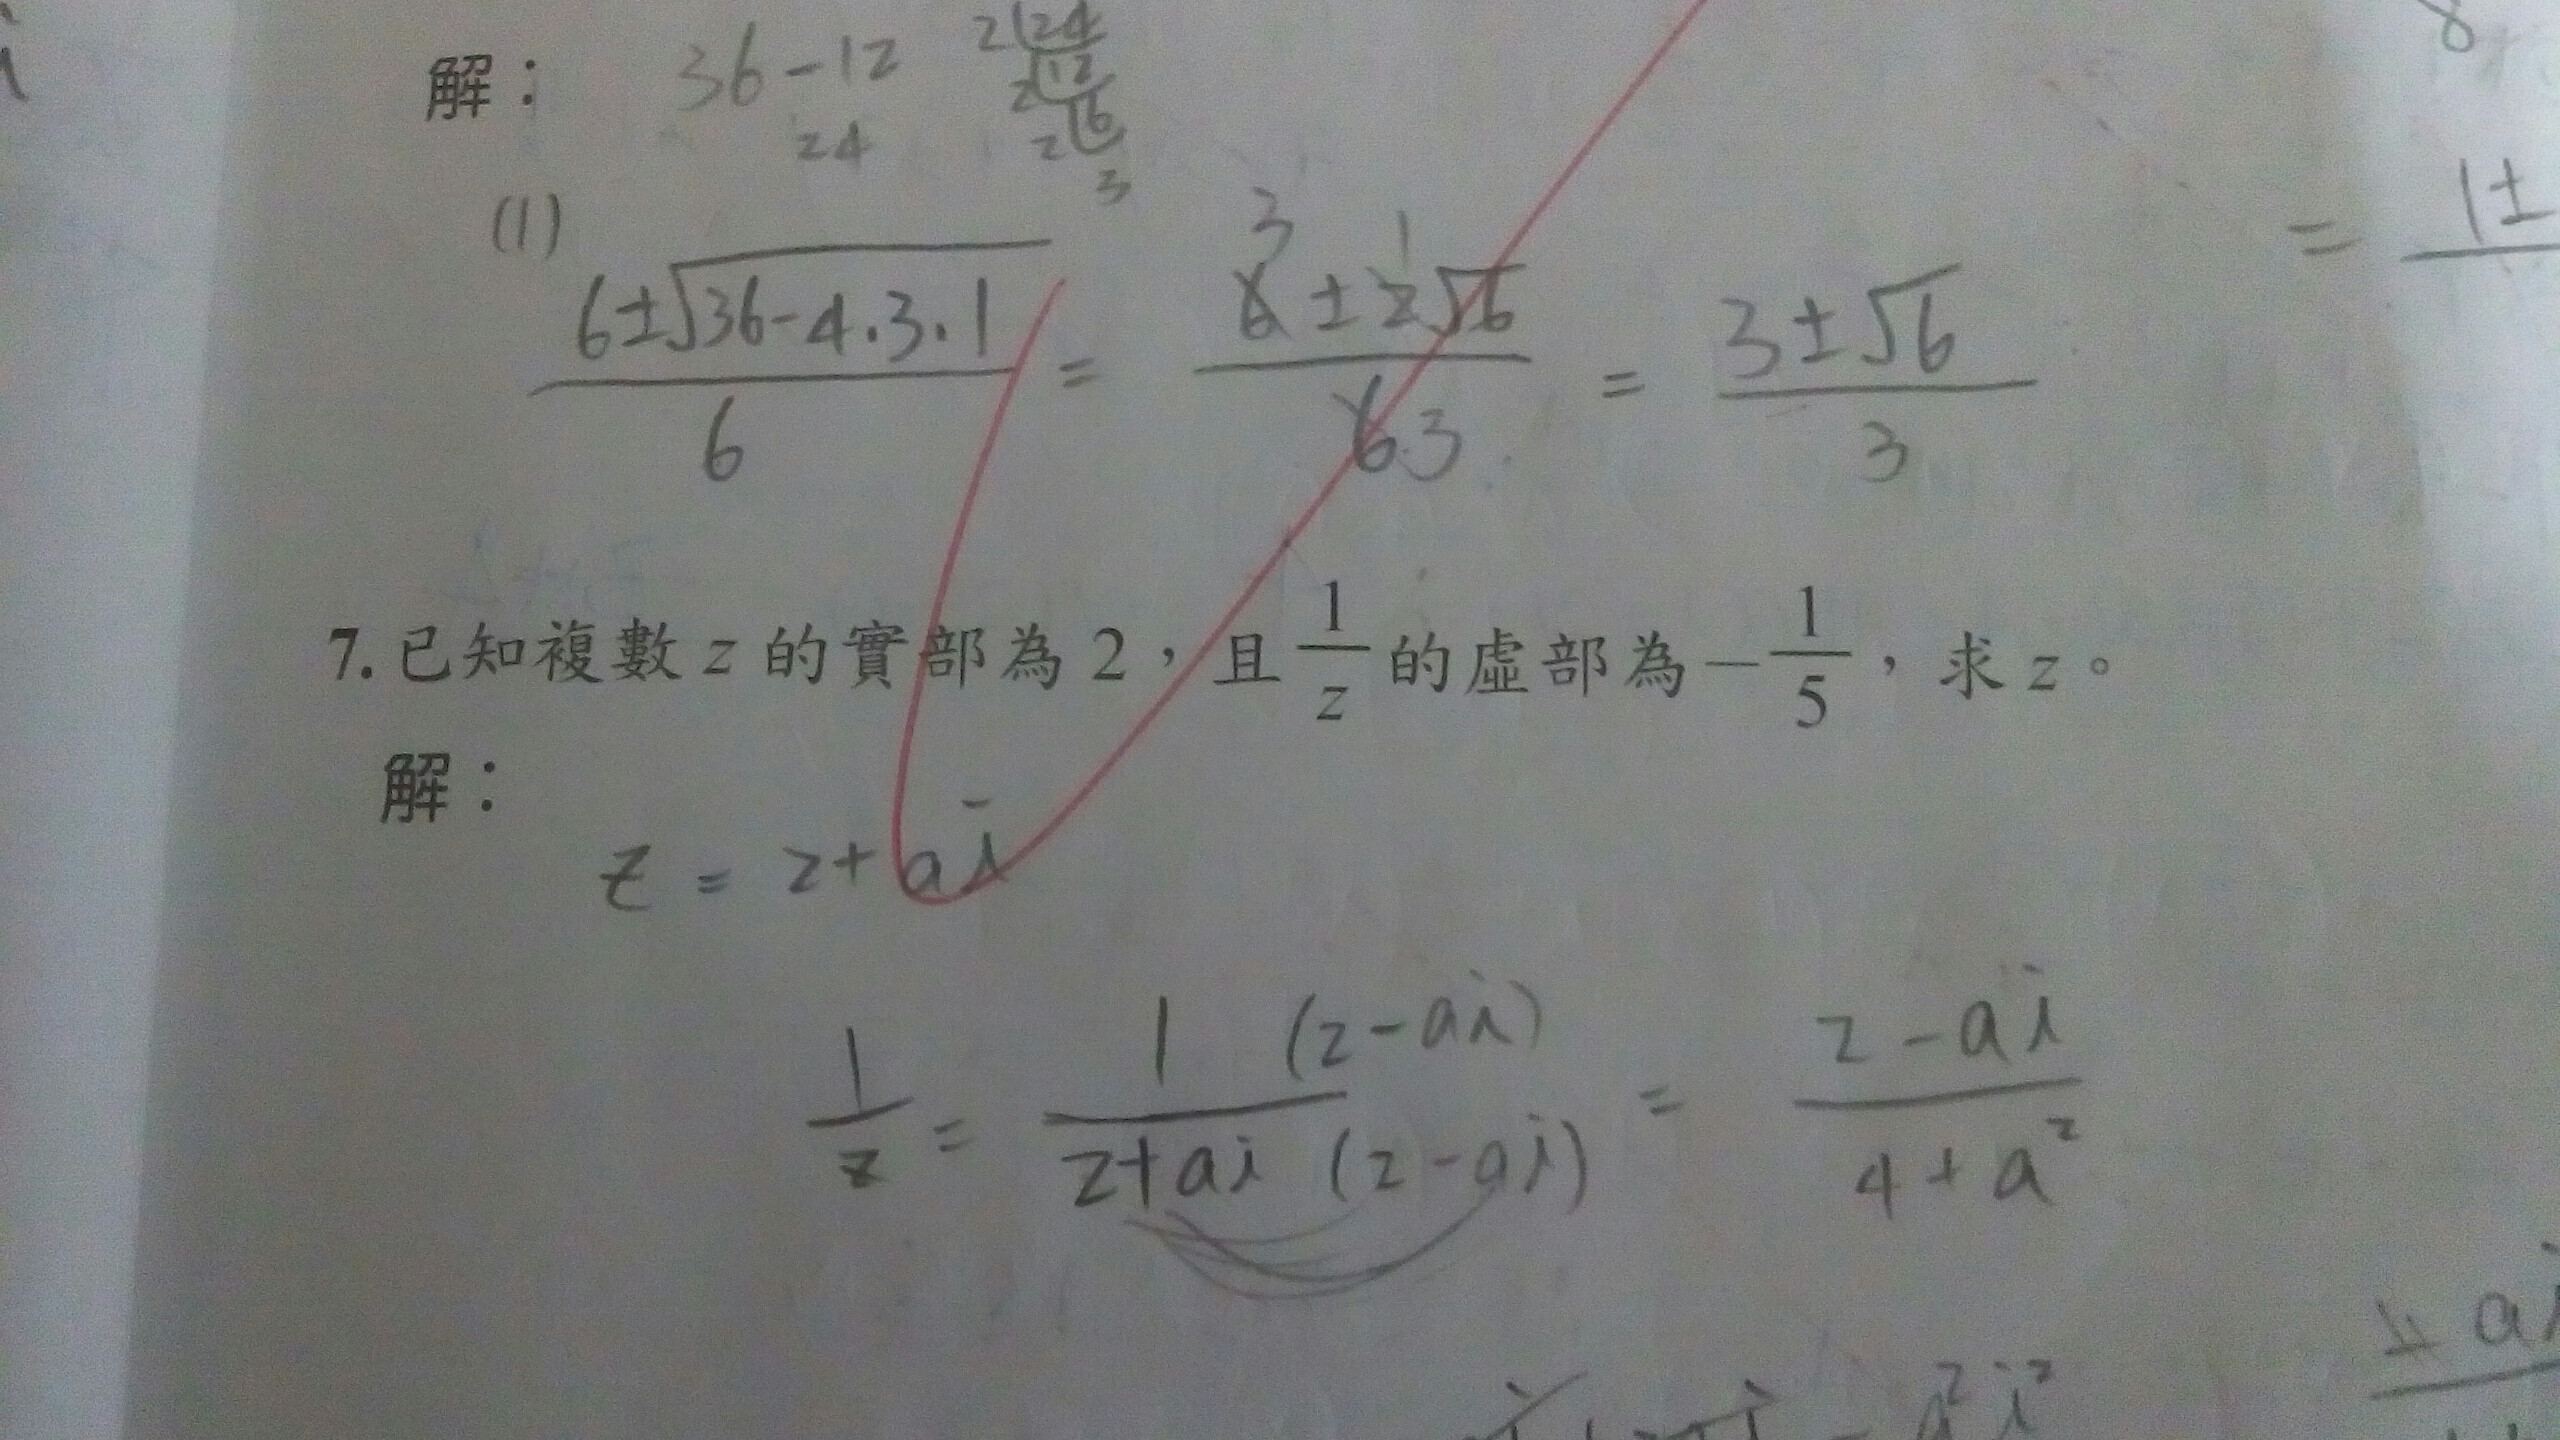 解： 36-12 2 24
24 2 12
2 6
3
(1) 6±√36-4.3.1 / 6 = 6±2√6 / 6 3 = 3±√6 / 3
3 1
= 1±
7. 已知複數 z 的實部為 2，且 1/z 的虛部為 -1/5，求 z。
解：
z = 2+ai
1/z = 1 (2-ai) / 2+ai (2-ai) = 2-ai / 4+a²
ai
- a²i²